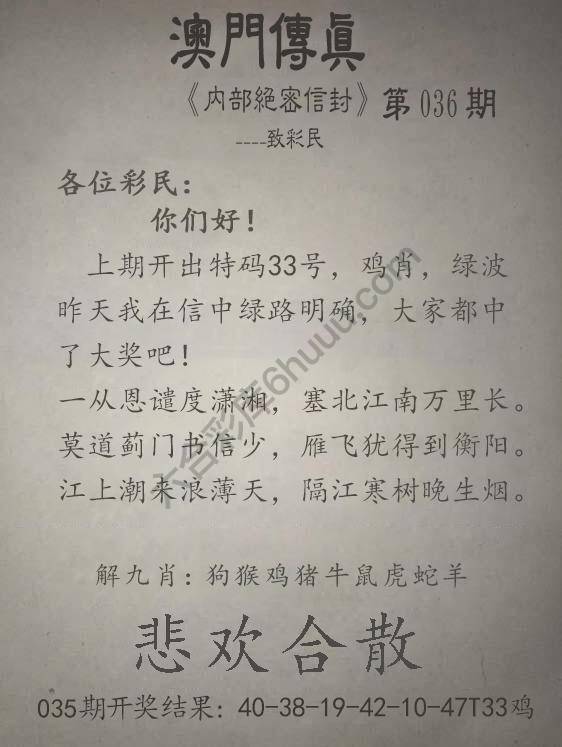 澳門傳眞
《内部絕密信封》第036期
----致彩民
各位彩民：
你们好！
上期开出特码33号，鸡肖，绿波
昨天我在信中绿路明确，大家都中
了大奖吧！
一从恩谴度潇湘，塞北江南万里长。
莫道蓟门书信少，雁飞犹得到衡阳。
江上潮来浪薄天，隔江寒树晚生烟。
六合彩库6huuu.com
解九肖：狗猴鸡猪牛鼠虎蛇羊
悲欢合散
035期开奖结果：40-38-19-42-10-47T33鸡